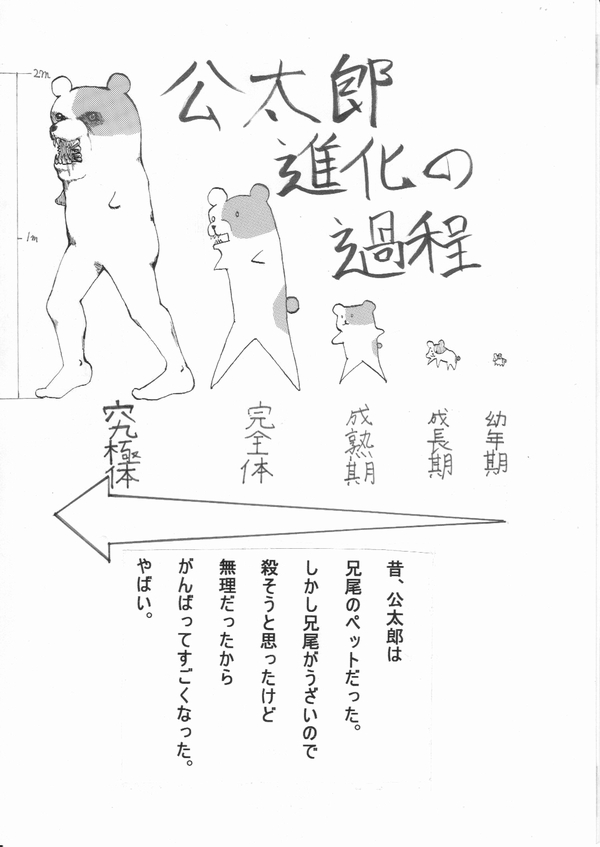 公太郎
進化の
過程
2m
1m
幼年期
成長期
成熟期
完全体
究極体
昔、公太郎は
兄尾のペットだった。
しかし兄尾がうざいので
殺そうと思ったけど
無理だったから
がんばってすごくなった。
やばい。